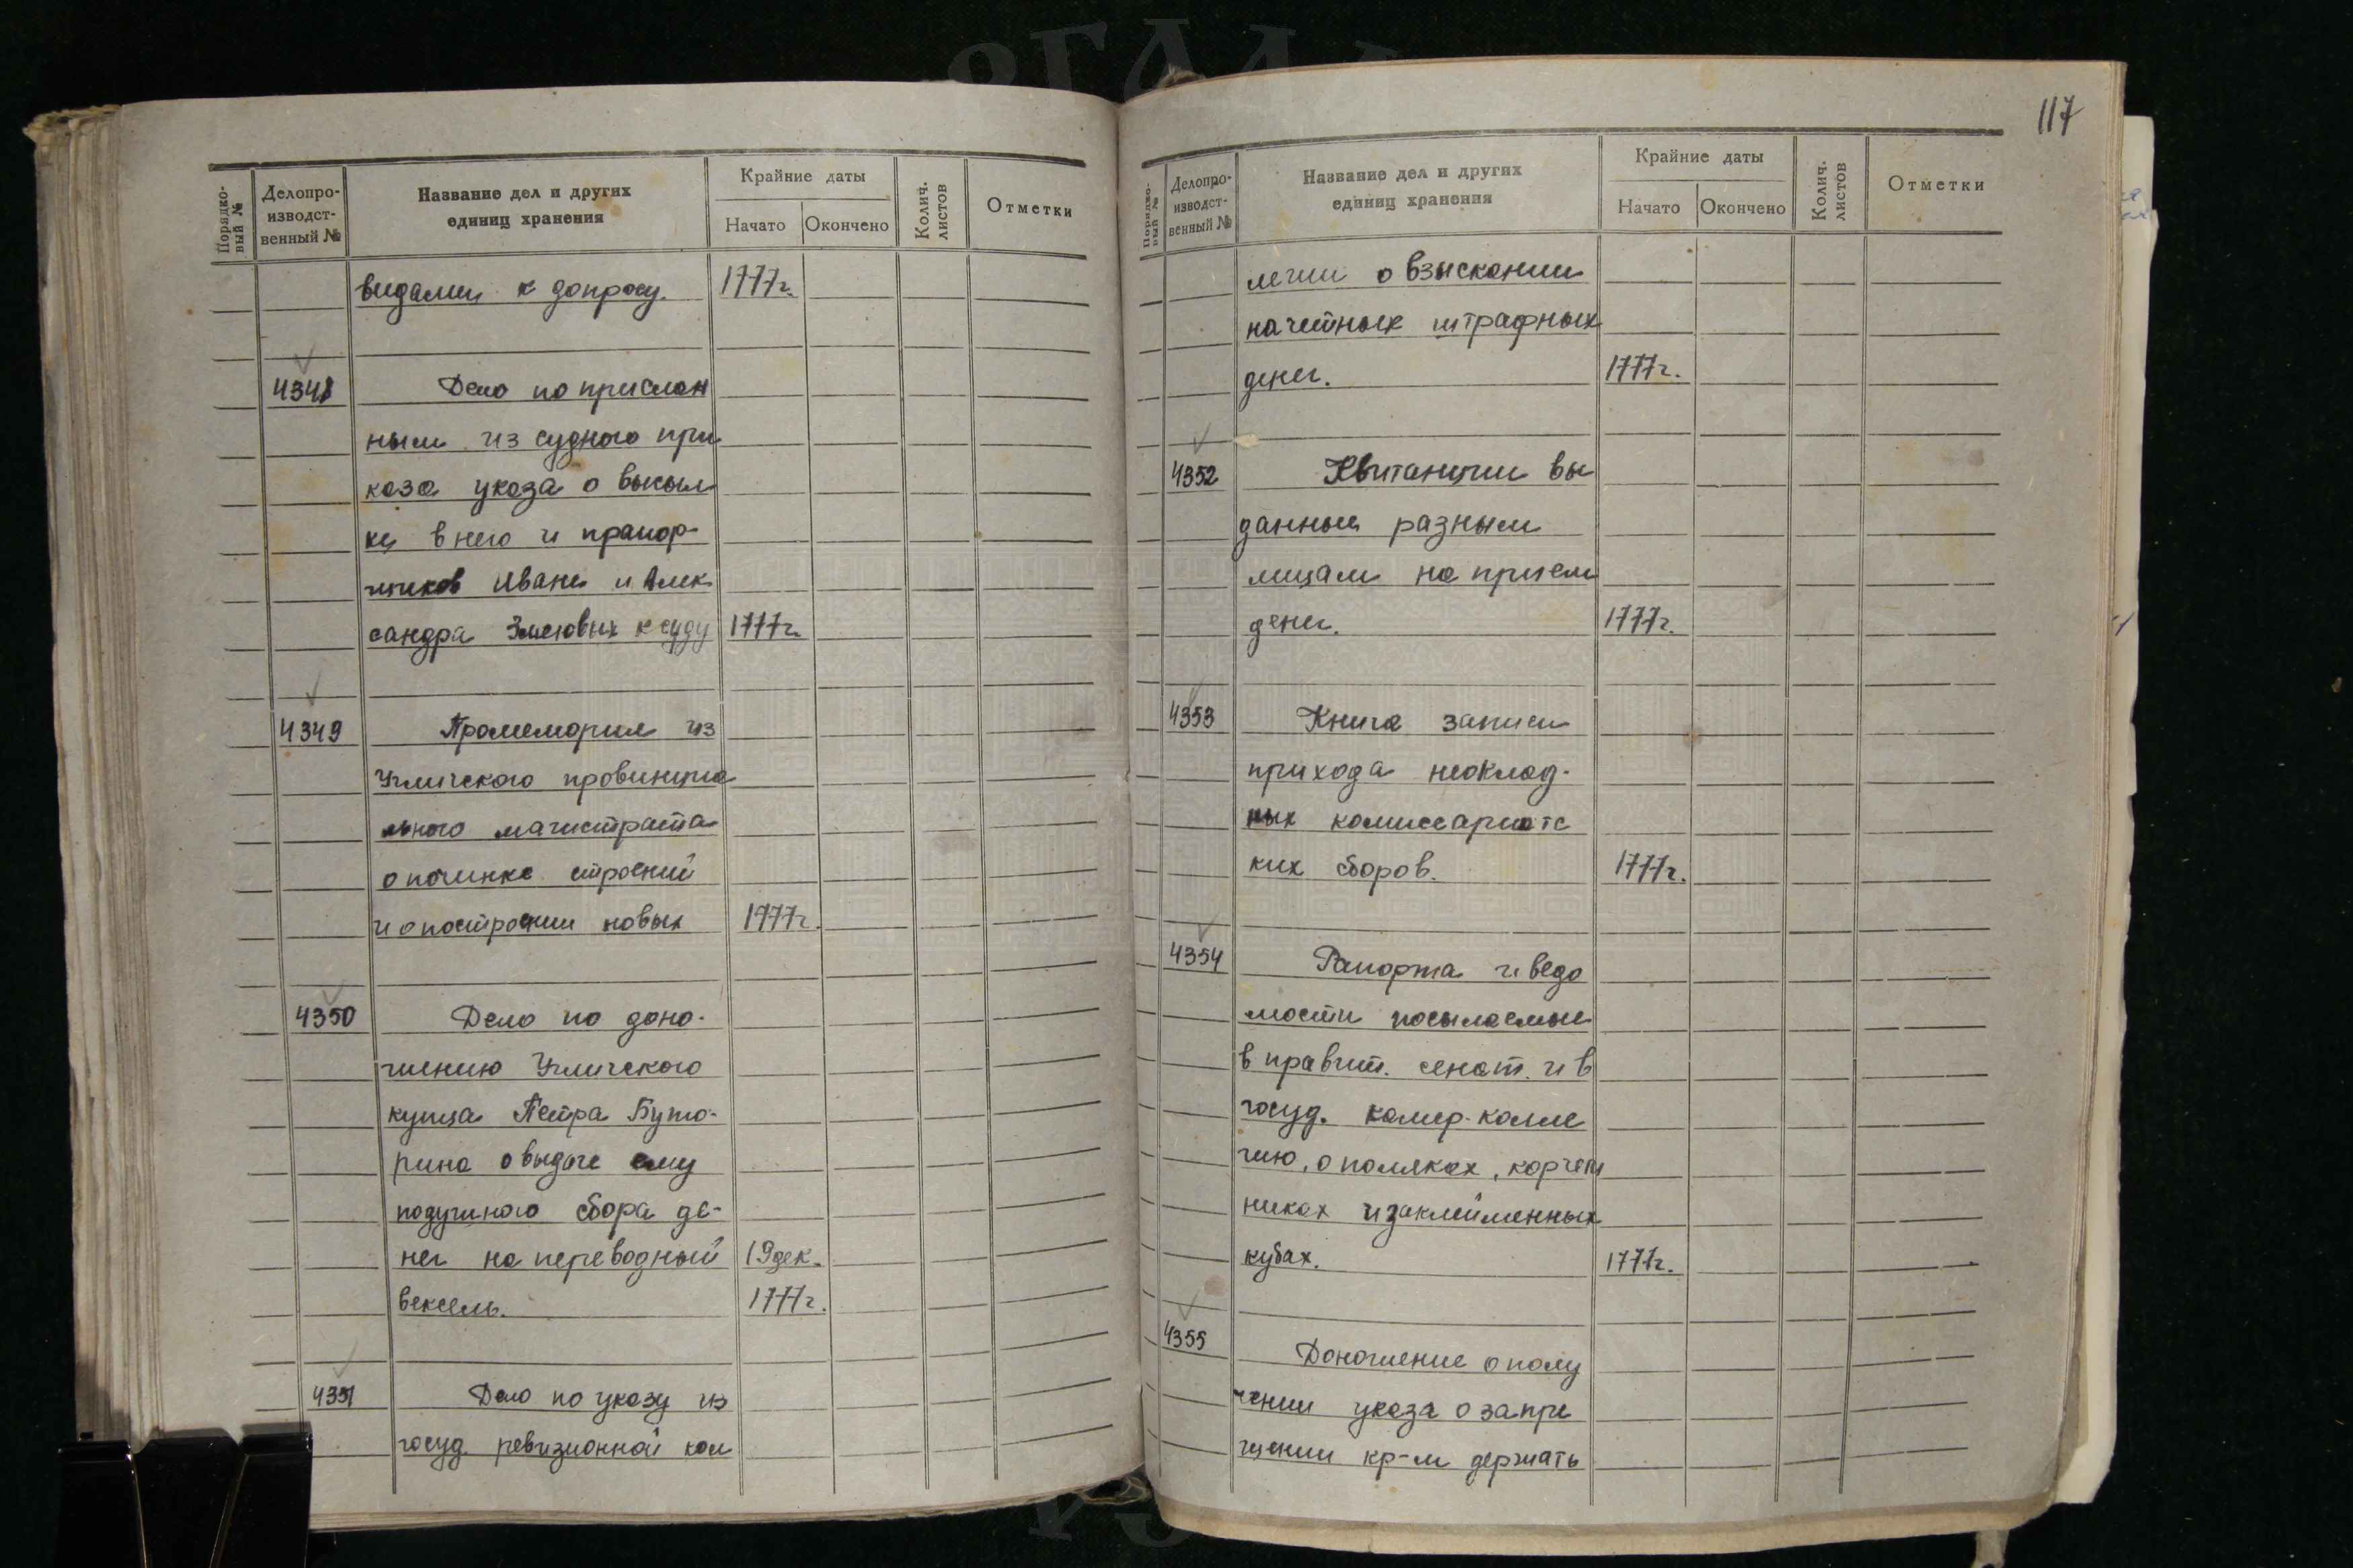 Порядко-
вый №
Делопро-
изводст-
венный №
Название дел и других
единиц хранения
Крайние даты
Начато
Окончено
Колич.
листов
Отметки
видами к допросу. 1777г.
4348 Дело по прислан
ным из судного при
каза указа о высыл
ке в него и прапор-
щиков Ивана и Алек
сандра Змеовых к суду 1777г.
4349 Промемория из
Угличского провинциа
льного магистрата
о починке строений
и о построении новых 1777г.
4350 Дело по доно-
шению Угличского
купца Петра Буто-
рина о выдаче ему
подушного сбора де-
нег на переводный 19дек.
вексель. 1777г.
4351 Дело по указу из
госуд. ревизионной кол
117
Порядко-
вый №
Делопро-
изводст-
венный №
Название дел и других
единиц хранения
Крайние даты
Начато
Окончено
Колич.
листов
Отметки
легии о взыскании
начетных штрафных
денег. 1777г.
4352 Квитанции вы
данные разным
лицам на прием
денег. 1777г.
4353 Книга записи
прихода неоклад-
ных комиссариатс
ких сборов. 1777г.
4354 Рапорта и ведо
мости посылаемые
в правит. сенат. и в
госуд. камер-колле
гию, о поляках, корчем
никах и заклейменных
кубах. 1777г.
4355 Доношение о полу
чении указа о запре
щении кр-м держать